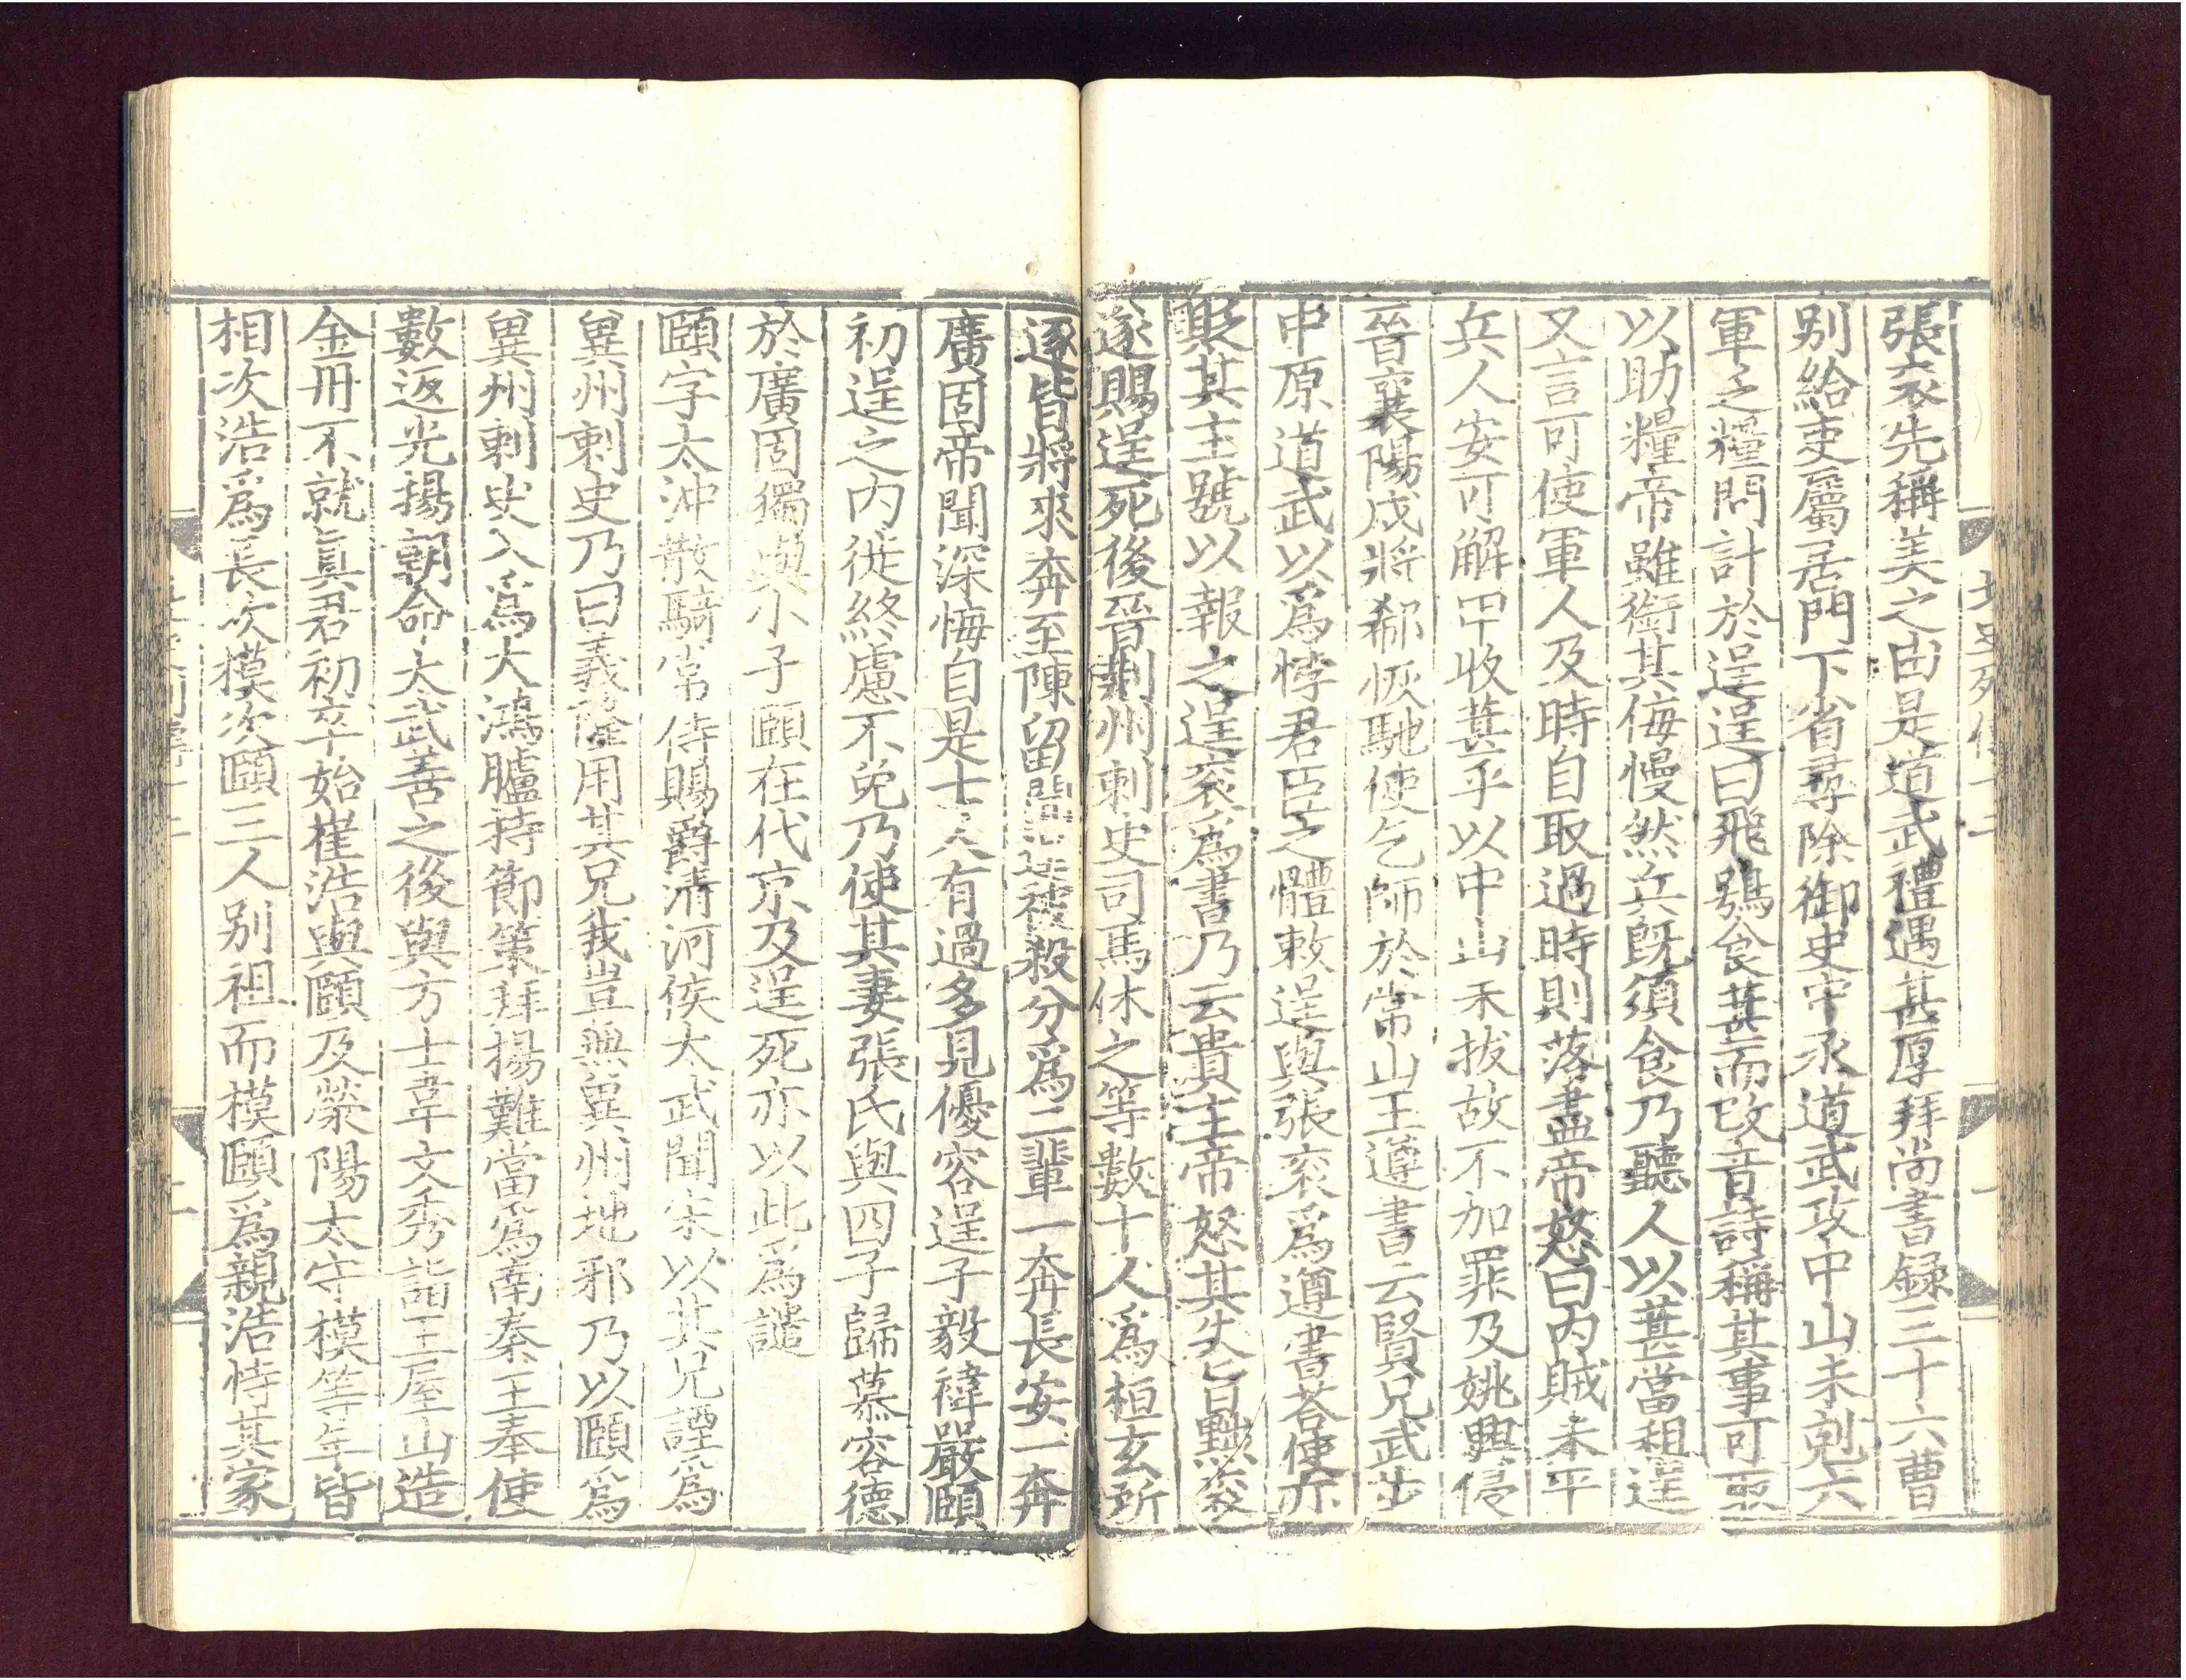 張衮先稱美之由是道武禮遇甚厚拜尚書録三十六曹
别給吏屬居門下省尋除御史中丞道武攻中山未剋六
軍乏糧問計於逞逞曰飛鴞食葚而改音詩稱其事可取
以助糧帝雖銜其侮慢然兵旣須食乃聽人以葚當租逞
又言可使軍人及時自取過時則落盡帝怒曰内賊未平
兵人安可解甲收葚乎以中山未拔故不加罪及姚興侵
晉襄陽戍將郗恢馳使乞師於常山王遵書云賢兄武步
中原道武以爲悖君臣之體敕逞與張衮爲遵書荅使亦
貶其主號以報之逞衮爲書乃云貴主帝怒其失旨黜衮
遂賜逞死後晉荆州刺史司馬休之等數十人爲桓玄所
逐皆將來奔至陳留聞逞被殺分爲二輩一奔長安一奔
廣固帝聞深悔自是士人有過多見優容逞子毅禕嚴頤
初逞之内徙終慮不免乃使其妻張氏與四子歸慕容德
於廣固獨與小子頤在代京及逞死亦以此爲譴
頤字太沖散騎常侍賜爵清河侯太武聞宋以其兄諲爲
兾州刺史乃曰義隆用其兄我豈無兾州地邪乃以頤爲
兾州刺史入爲大鴻臚持節策拜揚難當爲南秦王奉使
數返光揚朝命太武善之後與方士韋文秀詣王屋山造
金丹不就眞君初卒始崔浩與頤及滎陽太守模等年皆
相次浩爲長次模次頤三人别祖而模頤爲親浩恃其家